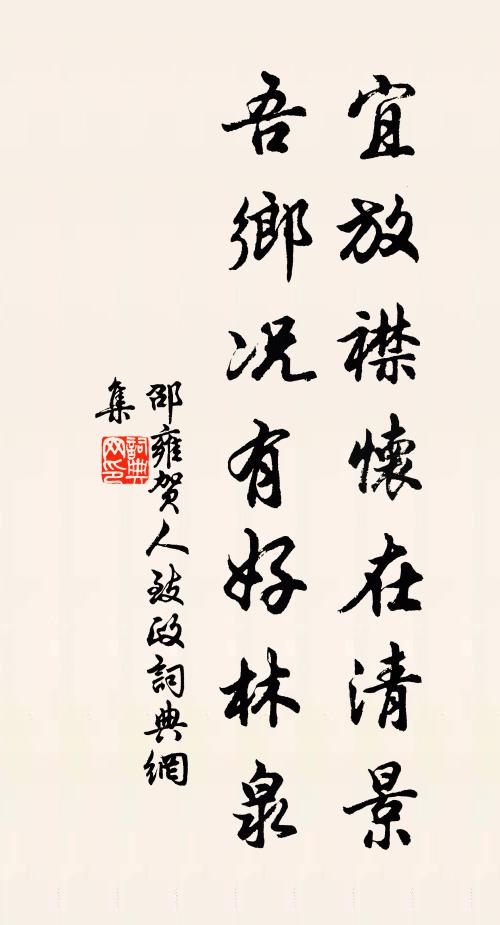 宜放襟懷在清景
吾鄉况有好林泉
邵雍賀人致政詞典網
集
詞典
网印